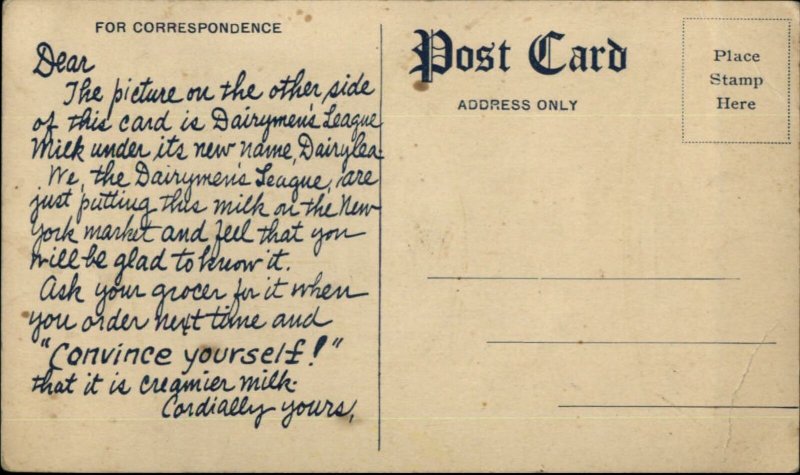 FOR CORRESPONDENCE
Dear
The picture on the other side
of this card is Dairymen's League
Milk under its new name, Dairylea.
We, the Dairymen's League, are
just putting this milk on the New
York market and feel that you
will be glad to know it.
Ask your grocer for it when
you order next time and
"Convince yourself!"
that it is creamier milk.
Cordially yours,
Post Card
ADDRESS ONLY
Place
Stamp
Here